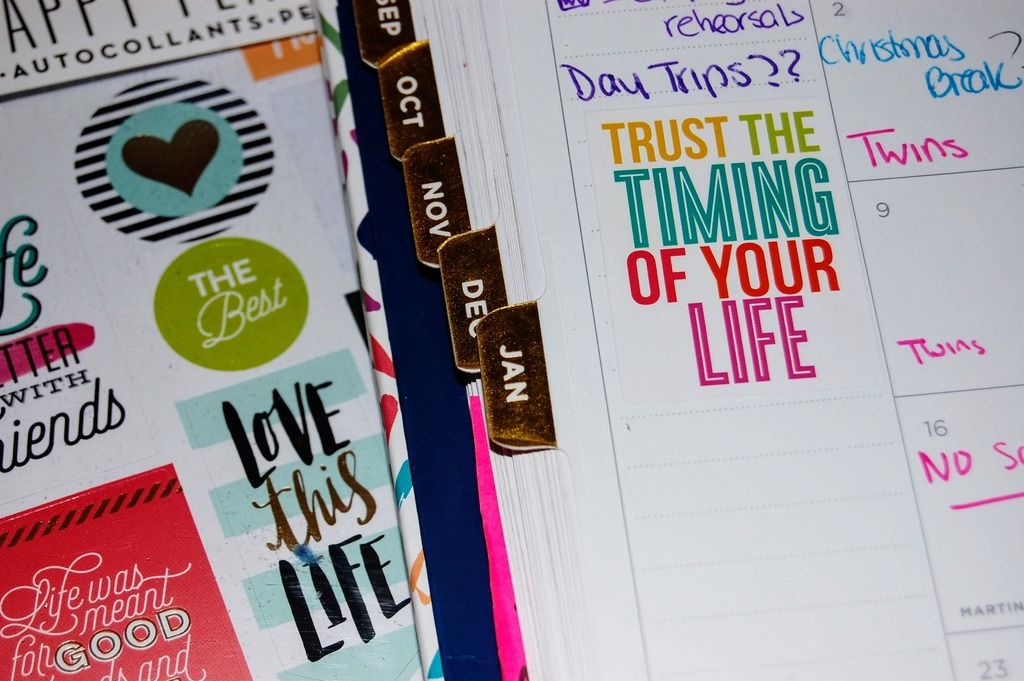 AUTOCOLLANTS
THE
Best
WITH
LOVE
this
LIFE
Life was
meant
for GOOD
and
SEP
OCT
NOV
DEC
JAN
rehearsals
Day Trips??
TRUST THE
TIMING
OF YOUR
LIFE
2
Christmas
Break?
Twins
9
Twins
16
NO
23